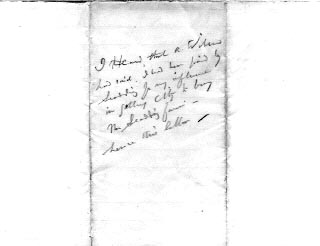 I Heard that a
had said I had been paid by
for my influence
in getting City to buy
The
hence this letter